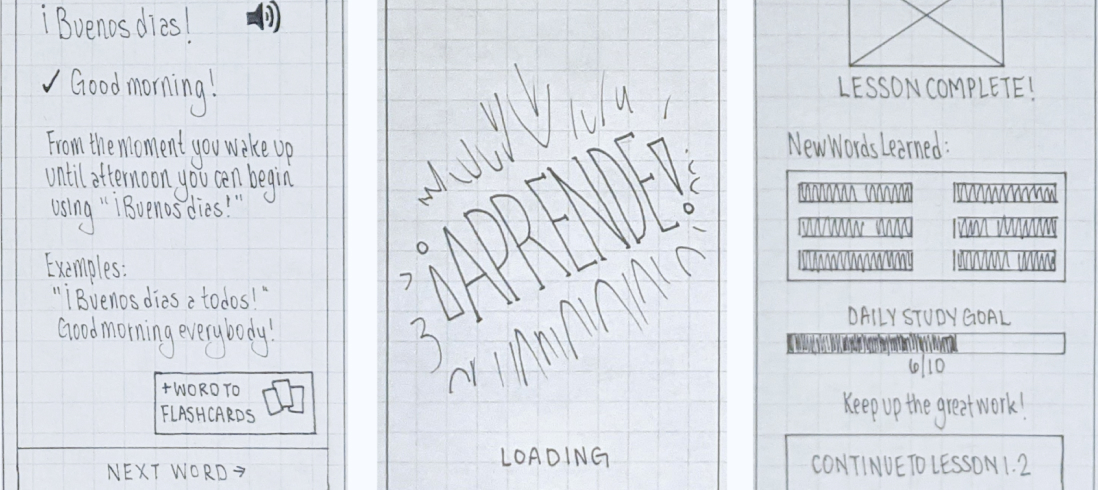 ¡Buenos días!
✓ Good morning!
From the moment you wake up
until afternoon you can begin
using "¡Buenos días!"
Examples:
"¡Buenos días a todos!"
Good morning everybody!
+ WORD TO
FLASHCARDS
NEXT WORD →
¡APRENDE!
LOADING
LESSON COMPLETE!
New Words Learned:
DAILY STUDY GOAL
6/10
Keep up the great work!
CONTINUE TO LESSON 1.2